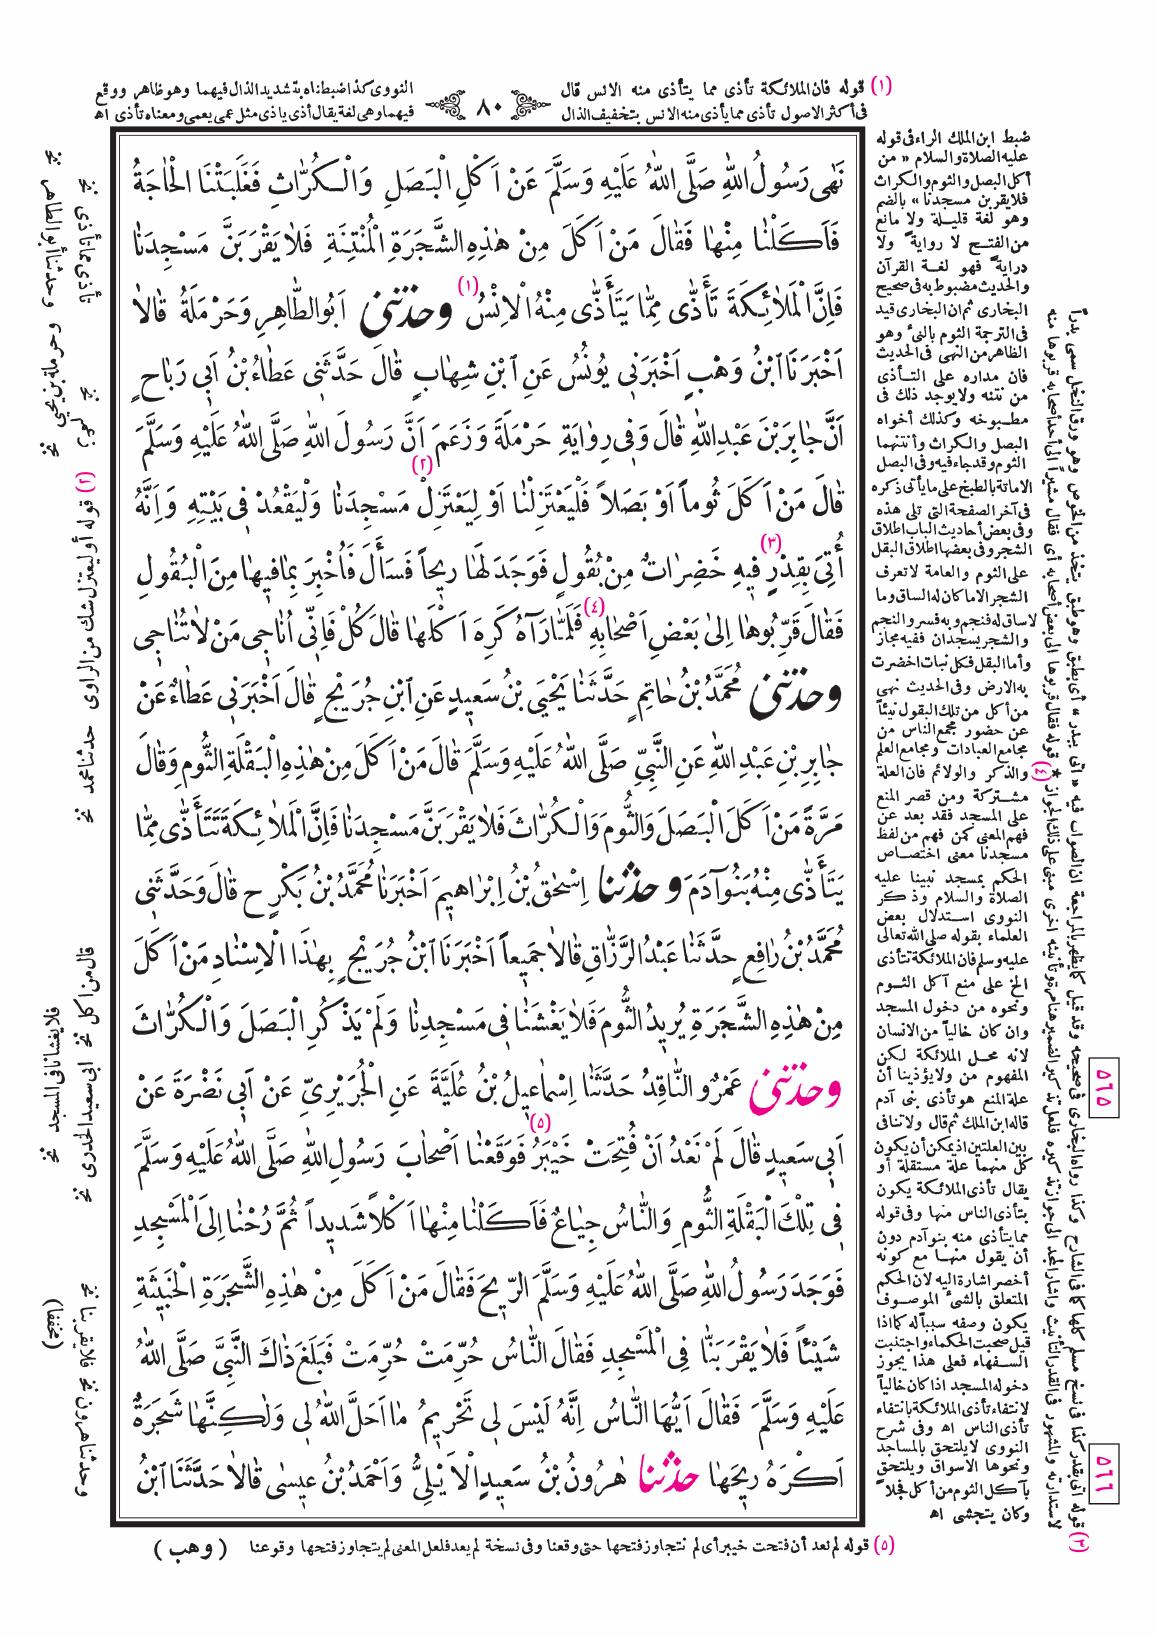 (١) قوله فان الملائكة تأذى مما يتأذى منه الانس قال
فى أكثر الاصول تأذى مما يأذى منه الانس بتخفيف الذال
٨٠
النووى كذا ضبطناه بتشديد الذال فيهما وهو ظاهر ووقع
فيهما وهى لغة يقال أذى ياذى مثل عمى يعمى ومعناه تأذى اه
نَهٰى رَسُولُ اللّٰهِ صَلَّى اللّٰهُ عَلَيْهِ وَسَلَّمَ عَنْ اَكْلِ الْبَصَلِ وَالْكُرَّاثِ فَغَلَبَتْنَا الْحَاجَةُ
فَاَكَلْنَا مِنْهَا فَقَالَ مَنْ اَكَلَ مِنْ هٰذِهِ الشَّجَرَةِ الْمُنْتِنَةِ فَلَا يَقْرَبَنَّ مَسْجِدَنَا
فَاِنَّ الْمَلَائِكَةَ تَأَذّٰى مِمَّا يَتَأَذّٰى مِنْهُ الْاِنْسُ (١) وحدثنى اَبُو الطَّاهِرِ وَحَرْمَلَةُ قَالَا
اَخْبَرَنَا ابْنُ وَهْبٍ اَخْبَرَنِى يُونُسُ عَنِ ابْنِ شِهَابٍ قَالَ حَدَّثَنِى عَطَاءُ بْنُ اَبِى رَبَاحٍ
اَنَّ جَابِرَ بْنَ عَبْدِ اللّٰهِ قَالَ وَفِى رِوَايَةِ حَرْمَلَةَ وَزَعَمَ اَنَّ رَسُولَ اللّٰهِ صَلَّى اللّٰهُ عَلَيْهِ وَسَلَّمَ
قَالَ مَنْ اَكَلَ ثُوماً اَوْ بَصَلاً فَلْيَعْتَزِلْنَا اَوْ لِيَعْتَزِلْ (٢) مَسْجِدَنَا وَلْيَقْعُدْ فِى بَيْتِهِ وَاِنَّهُ
اُتِىَ بِقِدْرٍ (٣) فِيهِ خَضِرَاتٌ مِنْ بُقُولٍ فَوَجَدَ لَهَا رِيحاً فَسَأَلَ فَاُخْبِرَ بِمَا فِيهَا مِنَ الْبُقُولِ
فَقَالَ قَرِّبُوهَا اِلٰى بَعْضِ اَصْحَابِهِ (٤) فَلَمَّا رَآهُ كَرِهَ اَكْلَهَا قَالَ كُلْ فَاِنِّى اُنَاجِى مَنْ لَا تُنَاجِى
وحدثنى مُحَمَّدُ بْنُ حَاتِمٍ حَدَّثَنَا يَحْيَى بْنُ سَعِيدٍ عَنِ ابْنِ جُرَيْجٍ قَالَ اَخْبَرَنِى عَطَاءٌ عَنْ
جَابِرِ بْنِ عَبْدِ اللّٰهِ عَنِ النَّبِىِّ صَلَّى اللّٰهُ عَلَيْهِ وَسَلَّمَ قَالَ مَنْ اَكَلَ مِنْ هٰذِهِ الْبَقْلَةِ الثُّومِ وَقَالَ
مَرَّةً مَنْ اَكَلَ الْبَصَلَ وَالثُّومَ وَالْكُرَّاثَ فَلَا يَقْرَبَنَّ مَسْجِدَنَا فَاِنَّ الْمَلَائِكَةَ تَتَأَذّٰى مِمَّا
يَتَأَذّٰى مِنْهُ بَنُو آدَمَ وحدثنا اِسْحٰقُ بْنُ اِبْرَاهِيمَ اَخْبَرَنَا مُحَمَّدُ بْنُ بَكْرٍ ح قَالَ وَحَدَّثَنِى
مُحَمَّدُ بْنُ رَافِعٍ حَدَّثَنَا عَبْدُ الرَّزَّاقِ قَالَا جَمِيعاً اَخْبَرَنَا ابْنُ جُرَيْجٍ بِهٰذَا الْاِسْنَادِ مَنْ اَكَلَ
مِنْ هٰذِهِ الشَّجَرَةِ يُرِيدُ الثُّومَ فَلَا يَغْشَنَا فِى مَسْجِدِنَا وَلَمْ يَذْكُرِ الْبَصَلَ وَالْكُرَّاثَ
وحدثنى عَمْرٌو النَّاقِدُ حَدَّثَنَا اِسْمَاعِيلُ بْنُ عُلَيَّةَ عَنِ الْجُرَيْرِىِّ عَنْ اَبِى نَضْرَةَ عَنْ
اَبِى سَعِيدٍ قَالَ لَمْ نَعْدُ اَنْ فُتِحَتْ خَيْبَرُ (٥) فَوَقَعْنَا اَصْحَابَ رَسُولِ اللّٰهِ صَلَّى اللّٰهُ عَلَيْهِ وَسَلَّمَ
فِى تِلْكَ الْبَقْلَةِ الثُّومِ وَالنَّاسُ جِيَاعٌ فَاَكَلْنَا مِنْهَا اَكْلاً شَدِيداً ثُمَّ رُحْنَا اِلَى الْمَسْجِدِ
فَوَجَدَ رَسُولُ اللّٰهِ صَلَّى اللّٰهُ عَلَيْهِ وَسَلَّمَ الرِّيحَ فَقَالَ مَنْ اَكَلَ مِنْ هٰذِهِ الشَّجَرَةِ الْخَبِيثَةِ
شَيْئاً فَلَا يَقْرَبَنَّا فِى الْمَسْجِدِ فَقَالَ النَّاسُ حُرِّمَتْ حُرِّمَتْ فَبَلَغَ ذَاكَ النَّبِىَّ صَلَّى اللّٰهُ
عَلَيْهِ وَسَلَّمَ فَقَالَ اَيُّهَا النَّاسُ اِنَّهُ لَيْسَ لِى تَحْرِيمُ مَا اَحَلَّ اللّٰهُ لِى وَلٰكِنَّهَا شَجَرَةٌ
اَكْرَهُ رِيحَهَا حدثنا هٰرُونُ بْنُ سَعِيدٍ الْاَيْلِىُّ وَاَحْمَدُ بْنُ عِيسٰى قَالَا حَدَّثَنَا ابْنُ
ضبط ابن الملك الراء فى قوله
عليه الصلاة والسلام « من
أكل البصل والثوم والكراث
فلا يقربن مسجدنا » بالضم
وهو لغة قليلة ولا مانع
من الفتح لا رواية ولا
دراية فهو لغة القرآن
والحديث مضبوط به فى صحيح
البخارى ثم ان البخارى قيد
فى الترجمة الثوم بالنىء وهو
الظاهر من النهى فى الحديث
فان مداره على التأذى
من نتنه ولا يوجد ذلك فى
مطبوخه وكذلك أخواه
البصل والكراث وأنتنهما
الثوم وقد جاء فيه وفى البصل
الاماتة بالطبخ على ما يأتى ذكره
فى آخر الصفحة التى تلى هذه
وفى بعض أحاديث الباب اطلاق
الشجر وفى بعضها اطلاق البقل
على الثوم والعامة لا تعرف
الشجر الا ما كان له الساق وما
لا ساق له فنجم وبه فسر والنجم
والشجر يسجدان ففيه مجاز
وأما البقل فكل نبات اخضرت
به الارض وفى الحديث نهى
من أكل من تلك البقول نيئاً
عن حضور مجمع الناس من
مجامع العبادات ومجامع العلم
والذكر والولائم فان العلة
مشتركة ومن قصر المنع
على المسجد فقد بعد عن
فهم المعنى كمن فهم من لفظ
مسجدنا معنى اختصاص
الحكم بمسجد نبينا عليه
الصلاة والسلام وذكر
النووى استدلال بعض
العلماء بقوله صلى الله تعالى
عليه وسلم فان الملائكة تتأذى
الخ على منع آكل الثوم
ونحوه من دخول المسجد
وان كان خالياً من الانسان
لانه محل الملائكة لكن
المفهوم من ولا يؤذينا أن
علة المنع هو تأذى بنى آدم
قاله ابن الملك ثم قال ولا تنافى
بين العلتين اذ يمكن أن يكون
كل منهما علة مستقلة أو
يقال تأذى الملائكة يكون
بتأذى الناس منها وفى قوله
مما يتأذى منه بنو آدم دون
أن يقول منها مع كونه
أخصر اشارة اليه لان الحكم
المتعلق بالشىء الموصوف
يكون وصفه سبباً له كما اذا
قيل صحبت الحكماء واجتنبت
السفهاء فعلى هذا يجوز
دخوله المسجد اذا كان خالياً
لانتفاء تأذى الملائكة بانتفاء
تأذى الناس اه وفى شرح
النووى لا يلتحق بالمساجد
ونحوها الاسواق ويلتحق
بآكل الثوم من أكل فجلاً
وكان يتجشى اه
(٣) قوله أتى بقدر كذا فى نسخ مسلم كلها كما فى الشارح وكذا رواه البخارى فى صحيحه وقد قيل كما يظهر بالمراجعة ان الصواب فيه « أتى ببدر » أى بطبق وهو طبق يتخذ من الخوص وهو ورق النخل سمى بدراً
لاستدارته
(٤) قوله فقال قربوها الى بعض أصحابه أى فقال مشيراً الى أحد أصحابه قربوها منه
٥٦٥
٥٦٦
تأذى مما تأذى نخ
وحدثنا أبو الطاهر نخ
وحرملة بن يحيى نخ
(٢) قوله أو ليعتزل شك من الراوى
حدثنا محمد نخ
قال من اكل نخ
فلا يغشانا فى المسجد نخ
ابى سعيد الخدرى نخ
فلا يقربنا نخ
(مخففا)
وحدثنا هرون نخ
(٥) قوله لم نعد أن فتحت خيبر أى لم نتجاوز فتحها حتى وقعنا وفى نسخة لم يعد فلعل المعنى لم يتجاوز فتحها وقوعنا
( وهب )